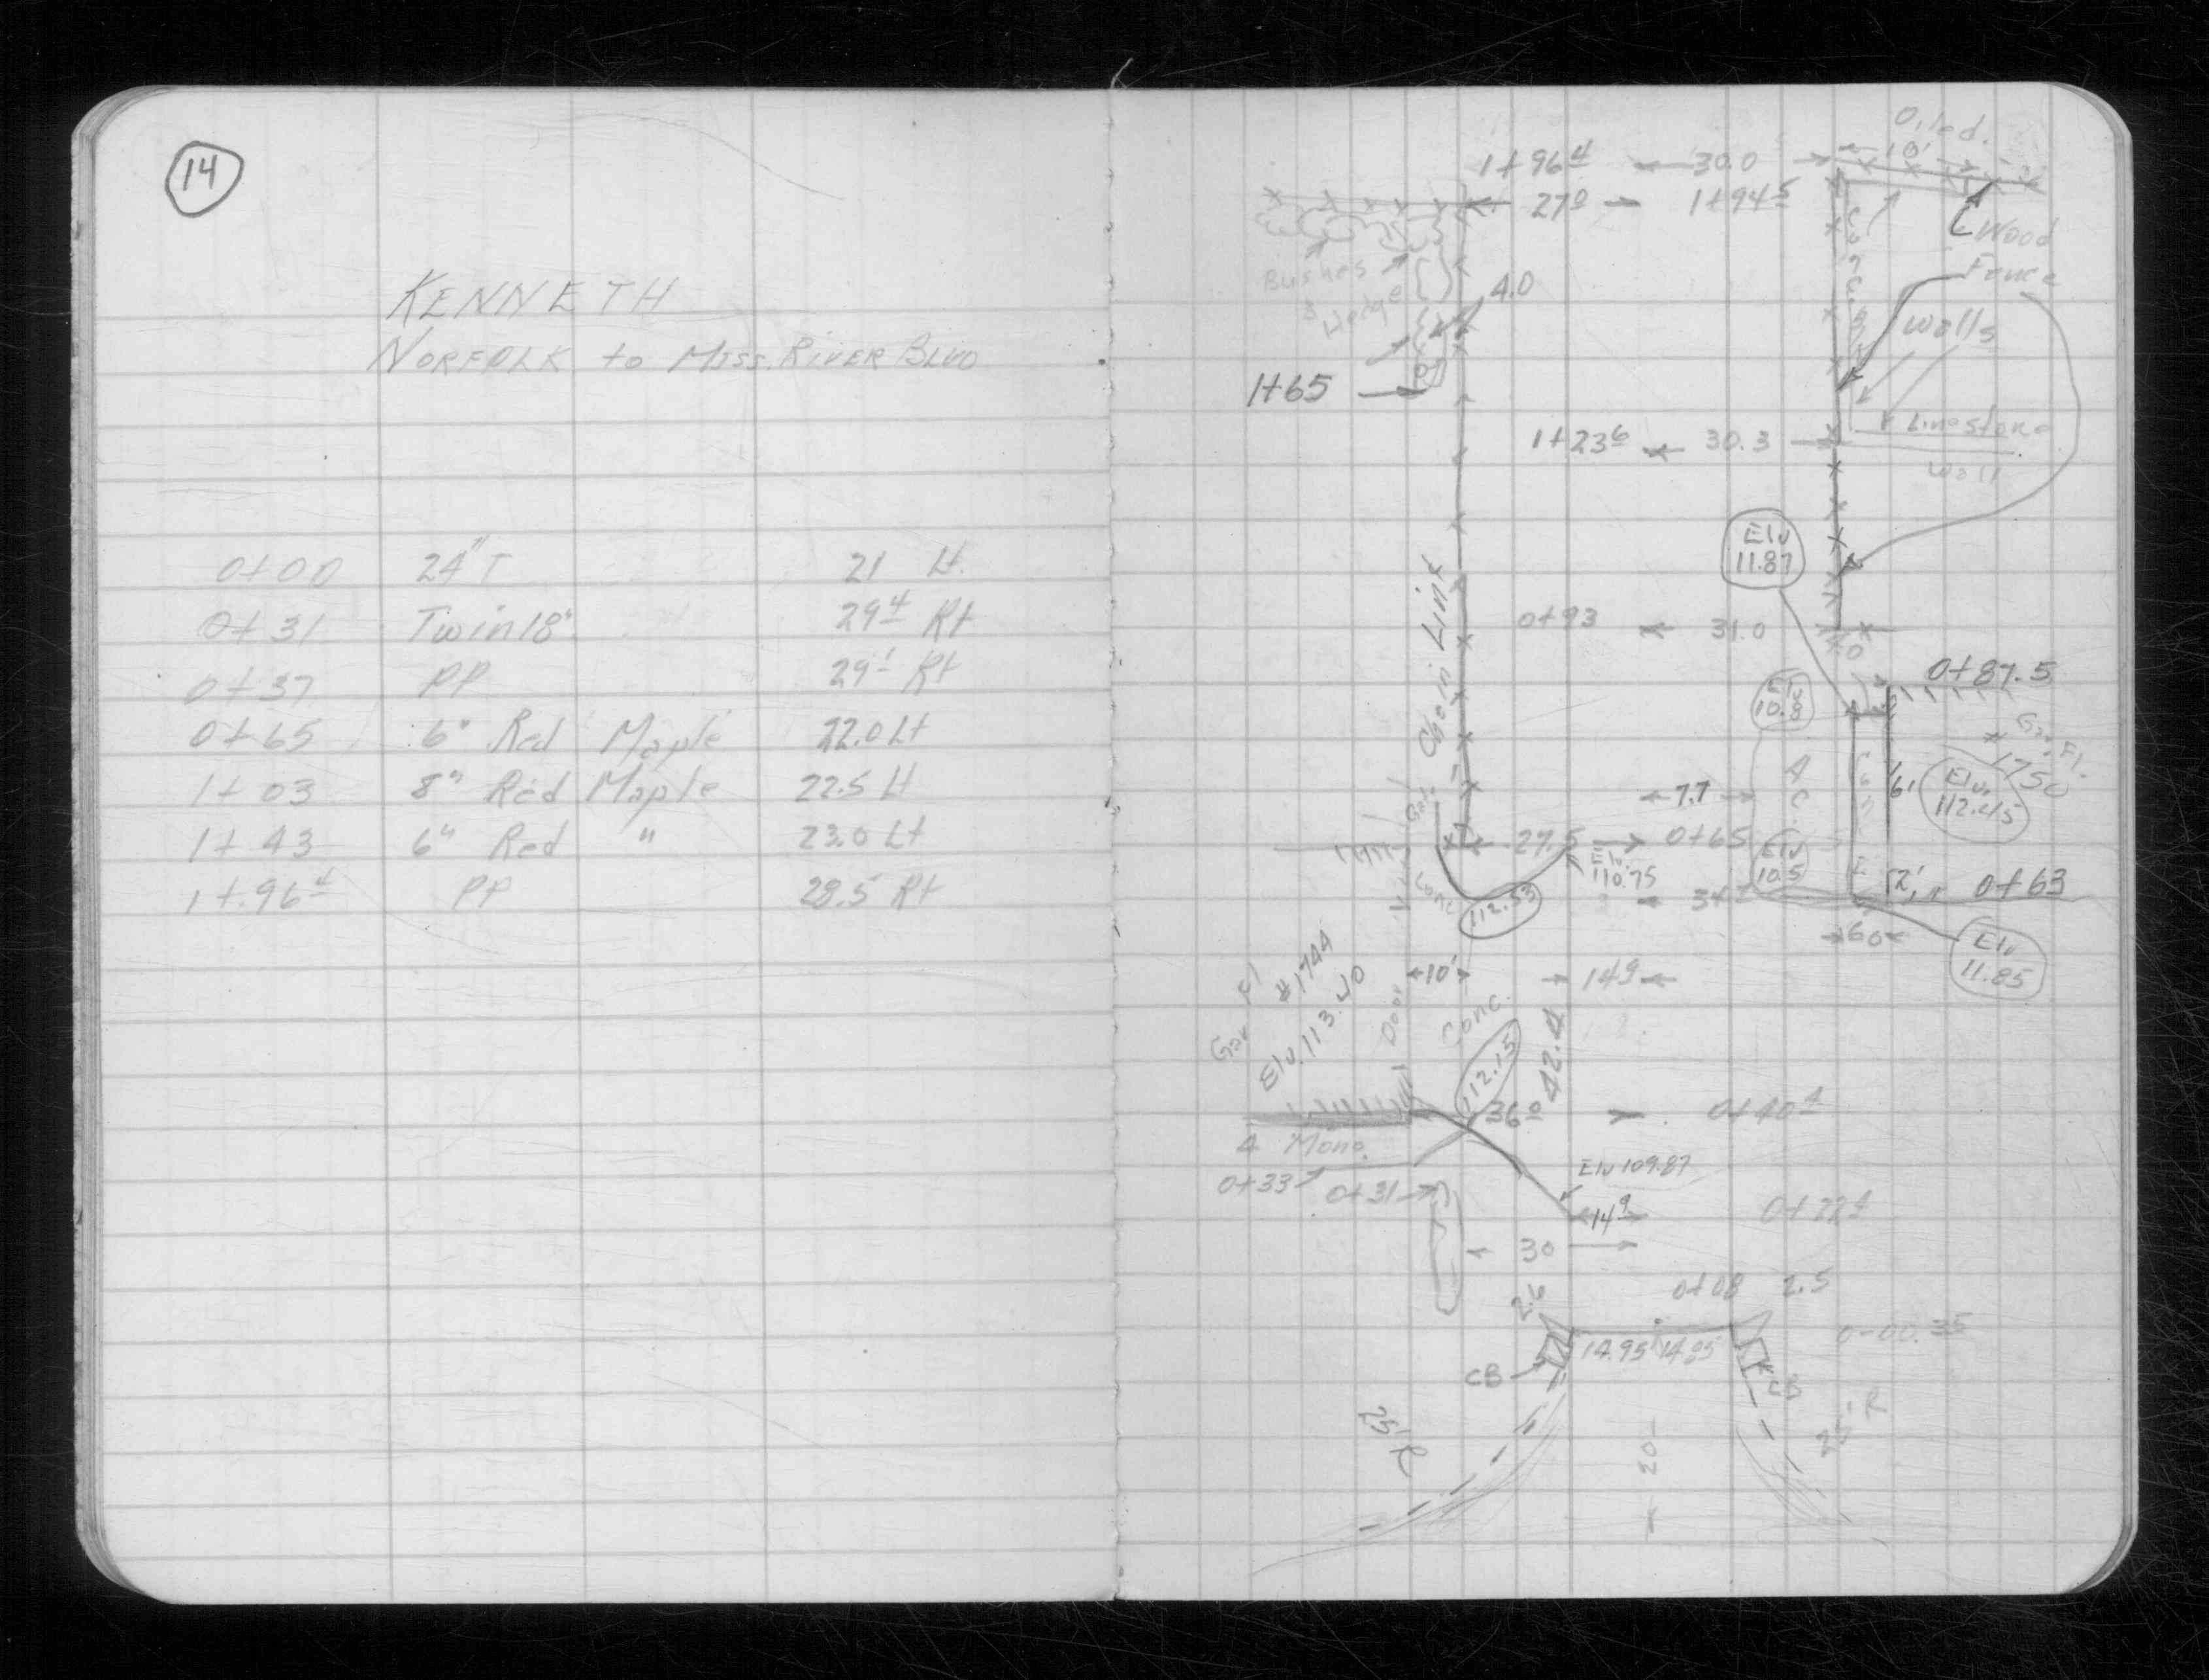 14
KENNETH
NORFOLK to MISS. RIVER BLVD
0+00 24" T 21 Lt.
0+31 Twin 18" 29⁴ Rt
0+37 PP 29¹ Rt
0+65 6" Red Maple 22.0 Lt
1+03 8" Red Maple 22.5 Lt
1+43 6" Red " 23.0 Lt
1+96⁴ PP 28.5 Rt
Oiled.
1+96⁴ 30.0 10'
27⁰ 1+94⁵
Wood
Fence
Bushes
&
Hedge
4.0
Walls
1+65
1+23⁶ 30.3 Limestone
Wall
Elv
11.87
Chain Link
0+93 31.0
0+87.5
Elv
10.8
Gar. Fl.
# 1750
Elv.
112.45
A
C
7.7
6'
Gate
27.5 0+65
Elv.
110.75
Elv
10.5
Conc
112.53
12' 0+63
60
Elv
11.85
Gar Fl
#1744
Elv. 113.40
Door
10'
14⁹
Conc.
112.15
42.4
36⁰
4 Mono.
0+33
0+31
Elv 109.87
14⁹
30
2.6
0+08 2.5
14.95 14.95
0-00.35
CB
CB
25' R
20
25' R